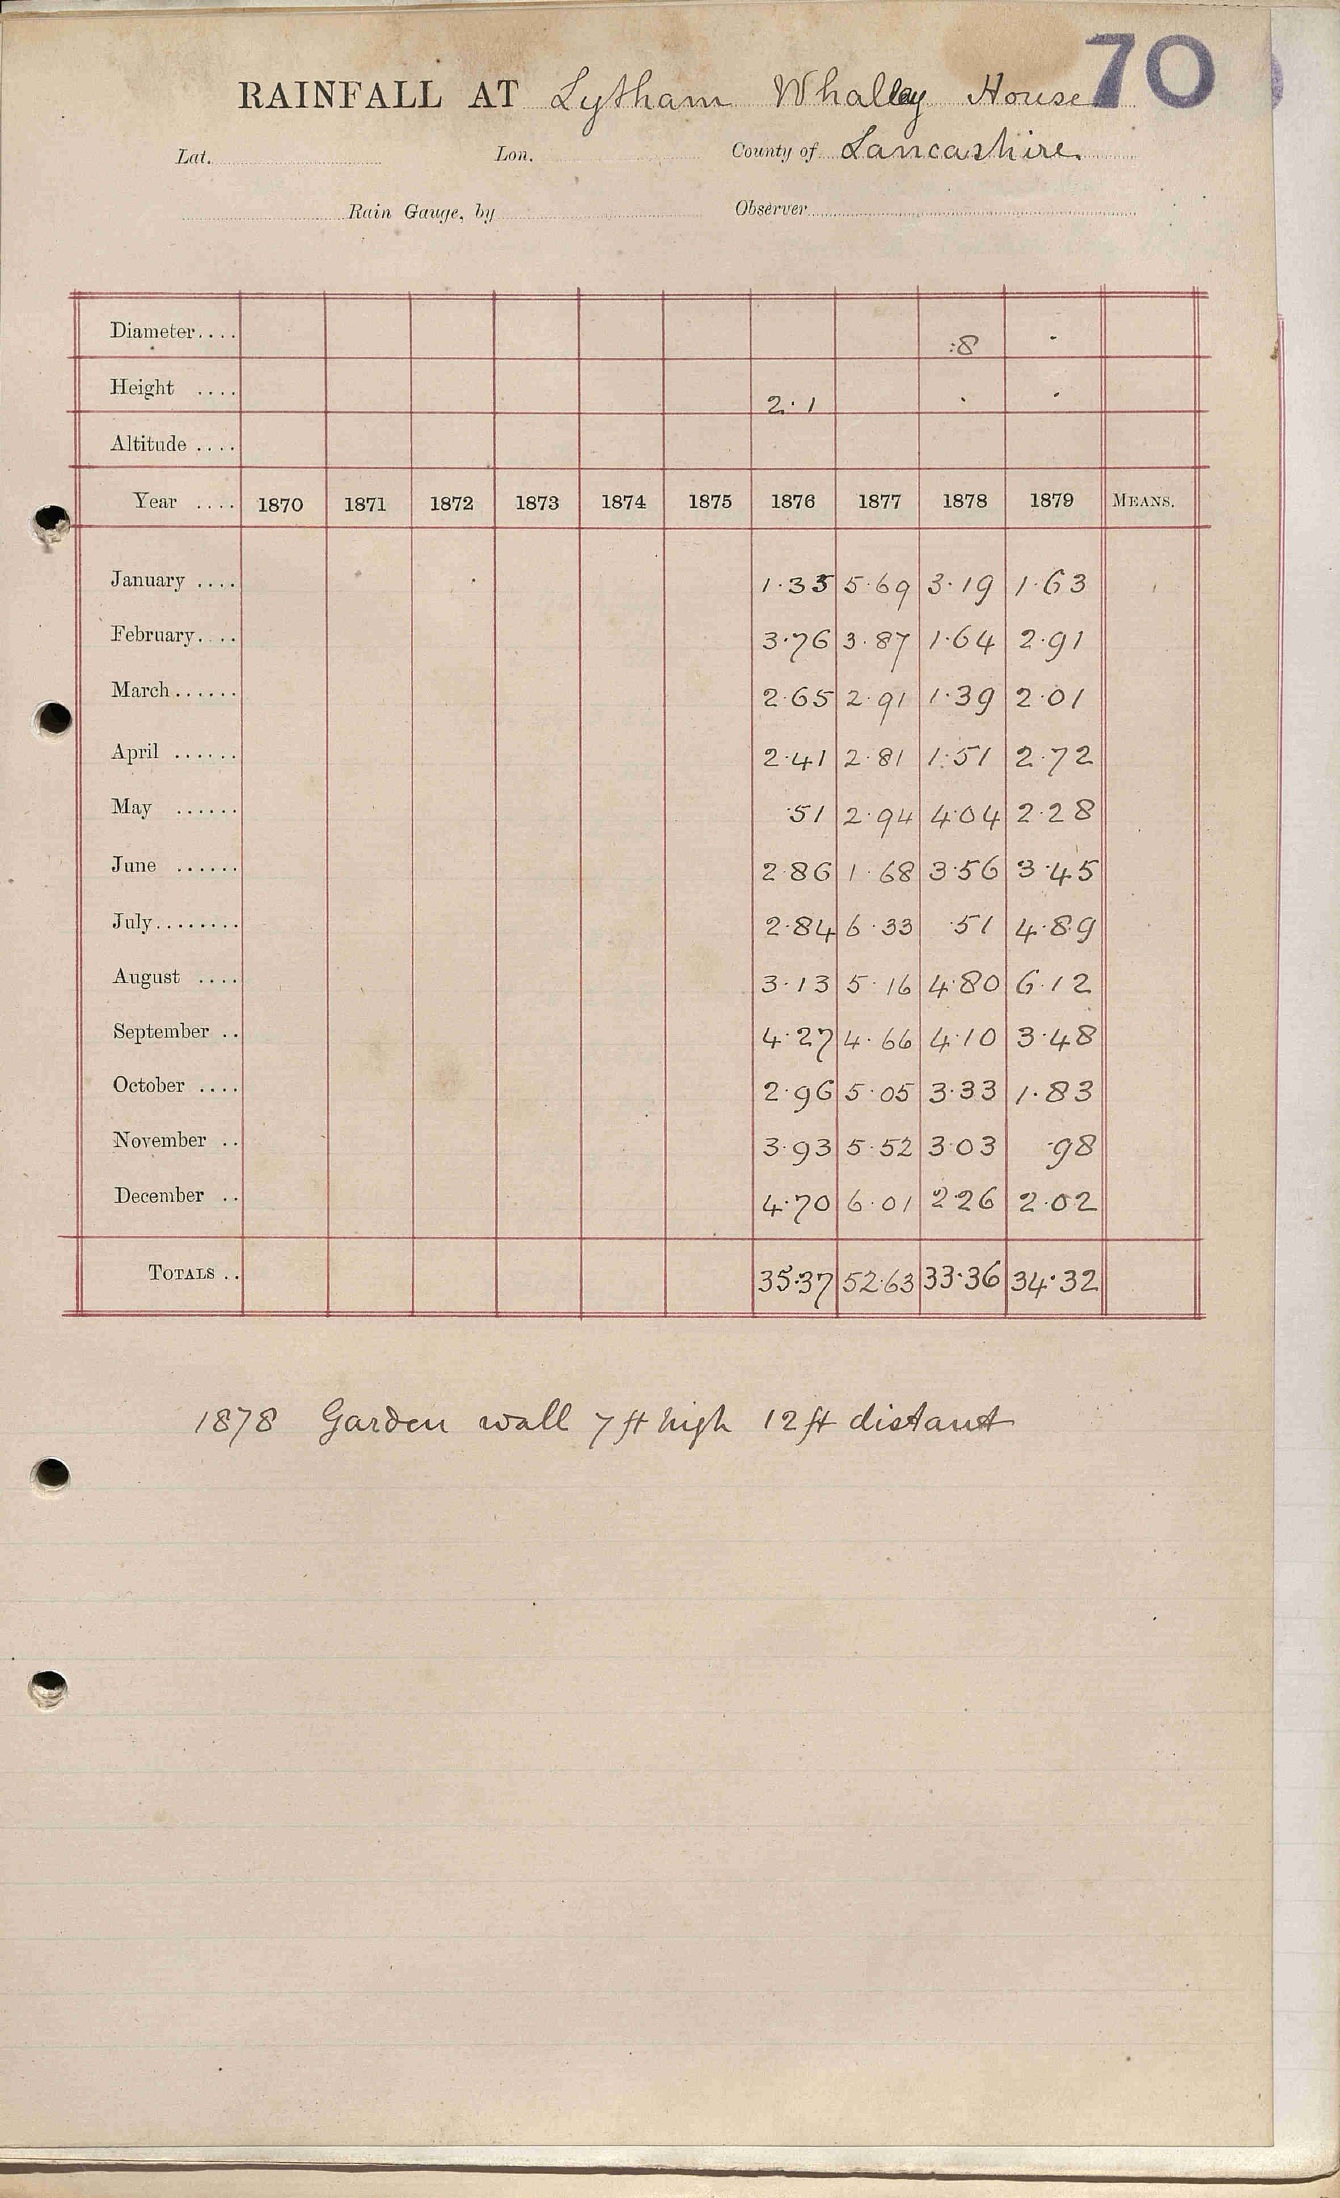 70
RAINFALL AT Lytham Whalley House
Lat. Lon. County of Lancashire.
Rain Gauge, by Observer
Diameter.... :8 .
Height .... 2.1 . .
Altitude ....
Year .... 1870 1871 1872 1873 1874 1875 1876 1877 1878 1879 MEANS.
January .... 1.35 5.69 3.19 1.63
February.... 3.76 3.87 1.64 2.91
March...... 2.65 2.91 1.39 2.01
April ...... 2.41 2.81 1.51 2.72
May ...... .51 2.94 4.04 2.28
June ...... 2.86 1.68 3.56 3.45
July........ 2.84 6.33 .51 4.89
August .... 3.13 5.16 4.80 6.12
September .. 4.27 4.66 4.10 3.48
October .... 2.96 5.05 3.33 1.83
November .. 3.93 5.52 3.03 .98
December .. 4.70 6.01 2.26 2.02
TOTALS .. 35.37 52.63 33.36 34.32
1878 Garden wall 7 ft high 12 ft distant